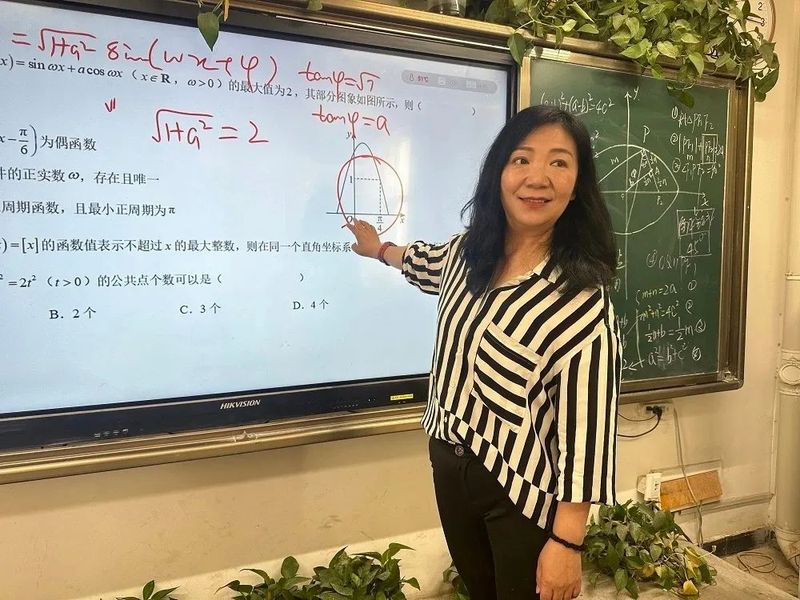 =√(1+a²) sin(ωx+φ)
tanφ=√7
x)=sin ωx+a cos ωx（x∈R，ω>0）的最大值为2，其部分图象如图所示，则（ ）
tanφ=a
√(1+a²)=2
x-π/6)为偶函数
件的正实数ω，存在且唯一
周期函数，且最小正周期为π
y
1
π/4
x
)=[x]的函数值表示不超过x的最大整数，则在同一个直角坐标系
²=2t²（t>0）的公共点个数可以是（ ）
B. 2个
C. 3个
D. 4个
HIKVISION
+(a-b)²=4c²
y
P
m+n=2a
m²+n²=4c²
a²=b²+c²